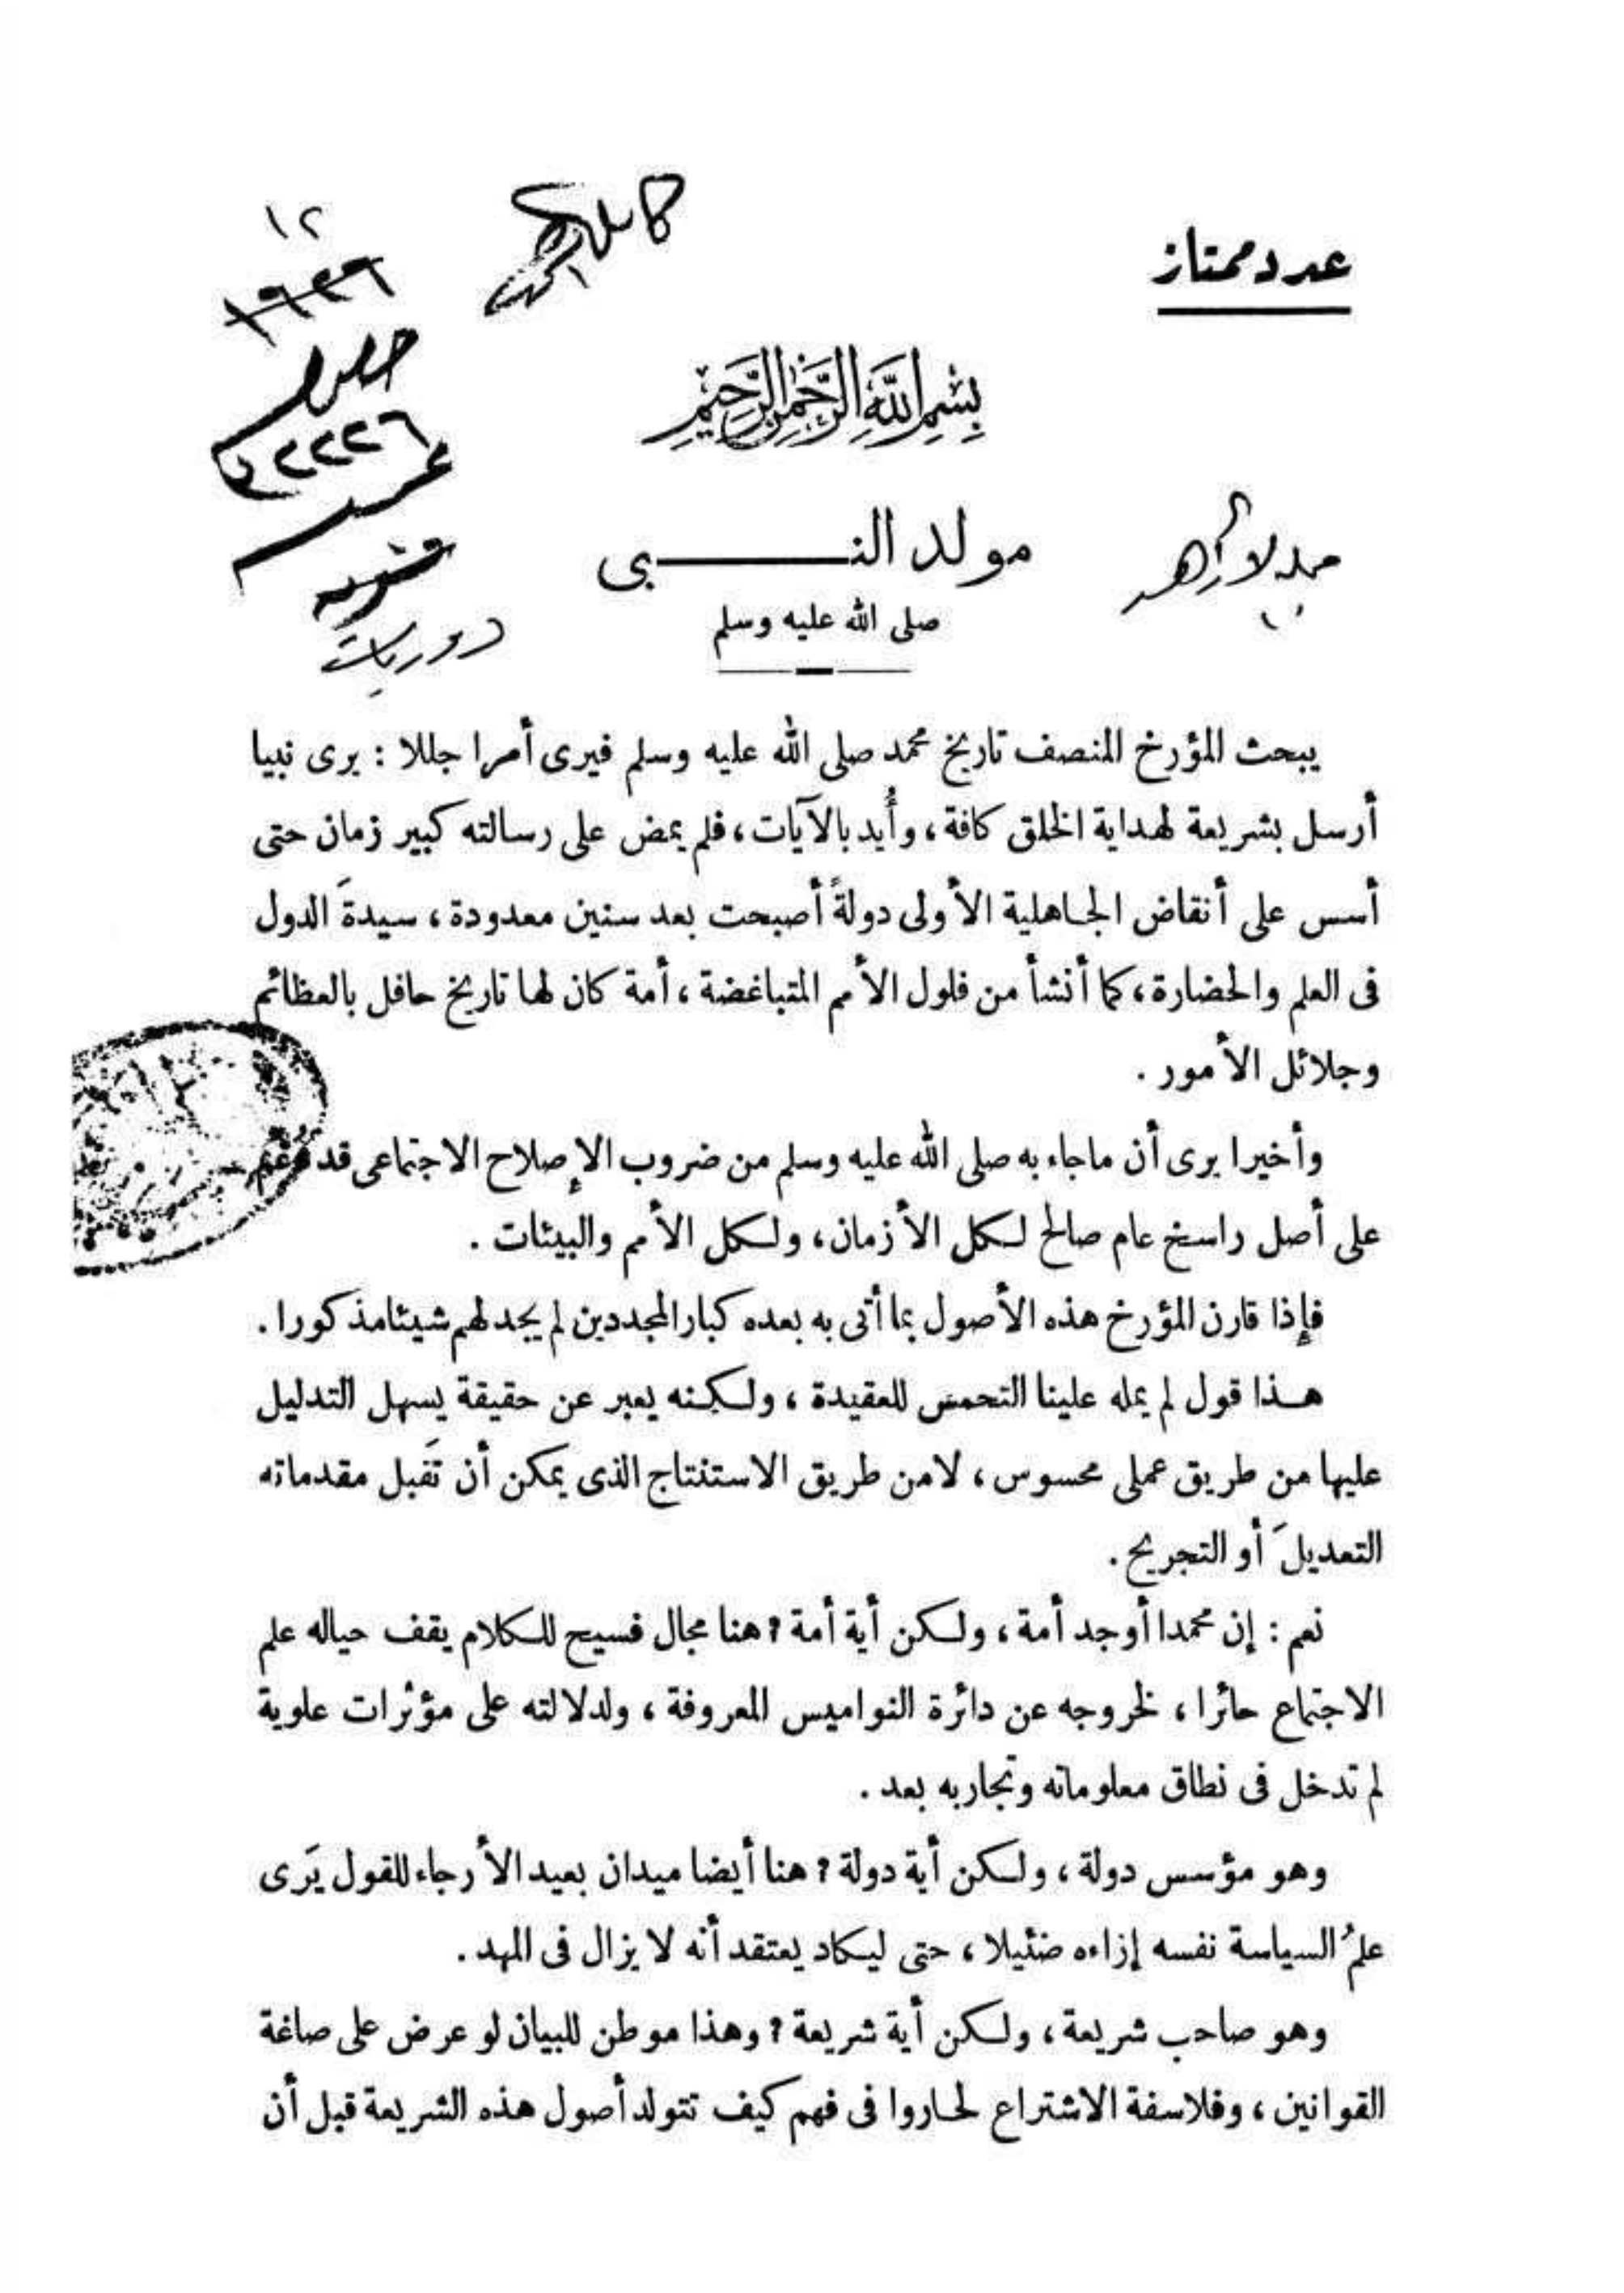 عدد ممتاز
١٢
١٩٣٩
٢٢٢٦
دوريات
بسم الله الرحمن الرحيم
مولد النبى
صلى الله عليه وسلم
يبحث المؤرخ المنصف تاريخ محمد صلى الله عليه وسلم فيرى أمرا جللا : يرى نبيا
أرسل بشريعة لهداية الخلق كافة ، وأُيد بالآيات ، فلم يمض على رسالته كبير زمان حتى
أسس على أنقاض الجاهلية الأولى دولةً أصبحت بعد سنين معدودة ، سيدةَ الدول
فى العلم والحضارة ، كما أنشأ من فلول الأمم المتباغضة ، أمة كان لها تاريخ حافل بالعظائم
وجلائل الأمور .
وأخيرا يرى أن ماجاء به صلى الله عليه وسلم من ضروب الإصلاح الاجتماعى قد
على أصل راسخ عام صالح لكل الأزمان ، ولكل الأمم والبيئات .
فإذا قارن المؤرخ هذه الأصول بما أتى به بعده كبار المجددين لم يجد لهم شيئا مذكورا .
هذا قول لم يمله علينا التحمس للعقيدة ، ولكنه يعبر عن حقيقة يسهل التدليل
عليها من طريق عملى محسوس ، لا من طريق الاستنتاج الذى يمكن أن تَقبل مقدماته
التعديلَ أو التجريح .
نعم : إن محمدا أوجد أمة ، ولكن أية أمة ؟ هنا مجال فسيح للكلام يقف حياله علم
الاجتماع حائرا ، لخروجه عن دائرة النواميس المعروفة ، ولدلالته على مؤثرات علوية
لم تدخل فى نطاق معلوماته وتجاربه بعد .
وهو مؤسس دولة ، ولكن أية دولة ؟ هنا أيضا ميدان بعيد الأرجاء للقول يَرى
علمُ السياسة نفسه إزاءه ضئيلا ، حتى ليكاد يعتقد أنه لا يزال فى المهد .
وهو صاحب شريعة ، ولكن أية شريعة ؟ وهذا موطن للبيان لو عرض على صاغة
القوانين ، وفلاسفة الاشتراع لحاروا فى فهم كيف تتولد أصول هذه الشريعة قبل أن